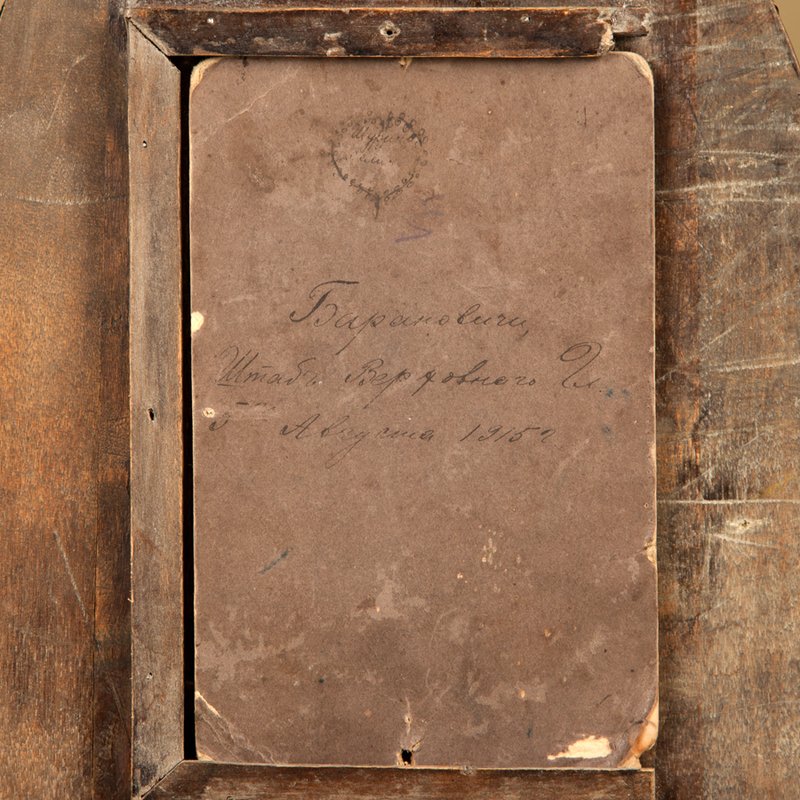 Барановичи,
Штабъ Верховного Гл.
5 Августа 1915 г